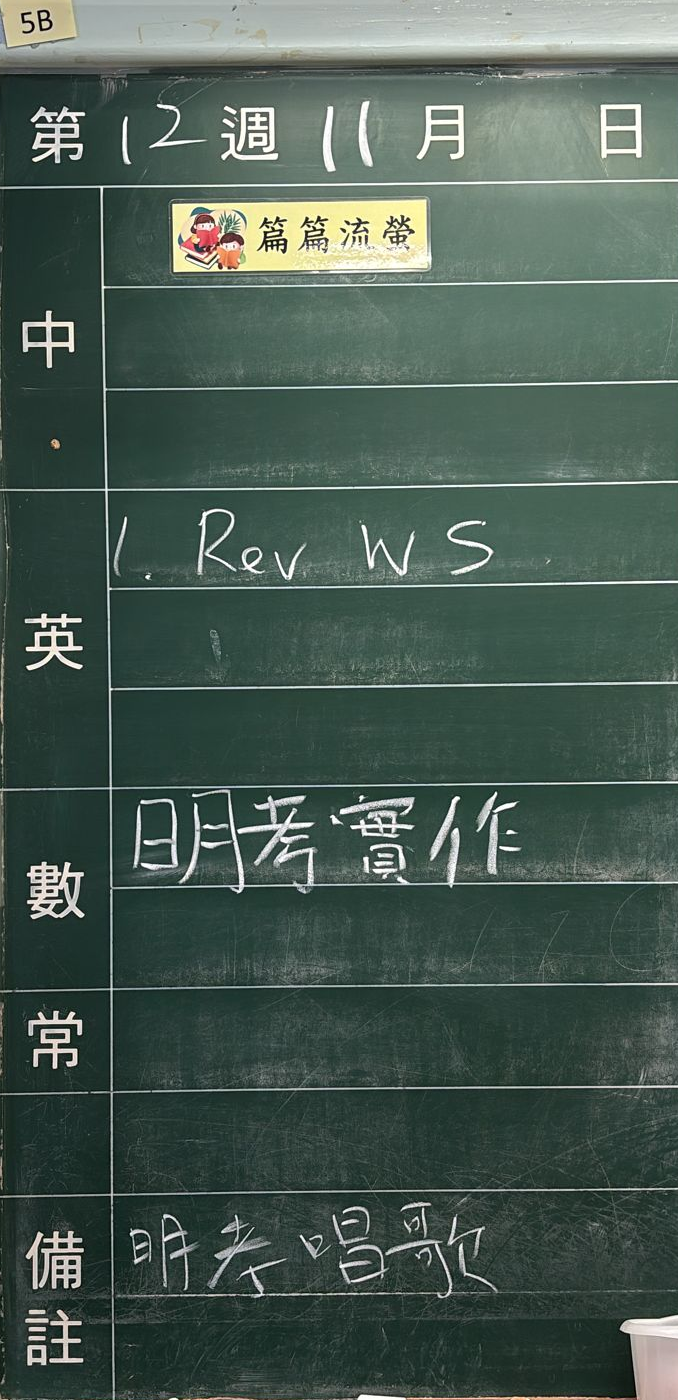 5B
第 12 週 11 月 日
篇篇流螢
中
1. Rev WS
英
明考實作
數
常
明考唱歌
備註